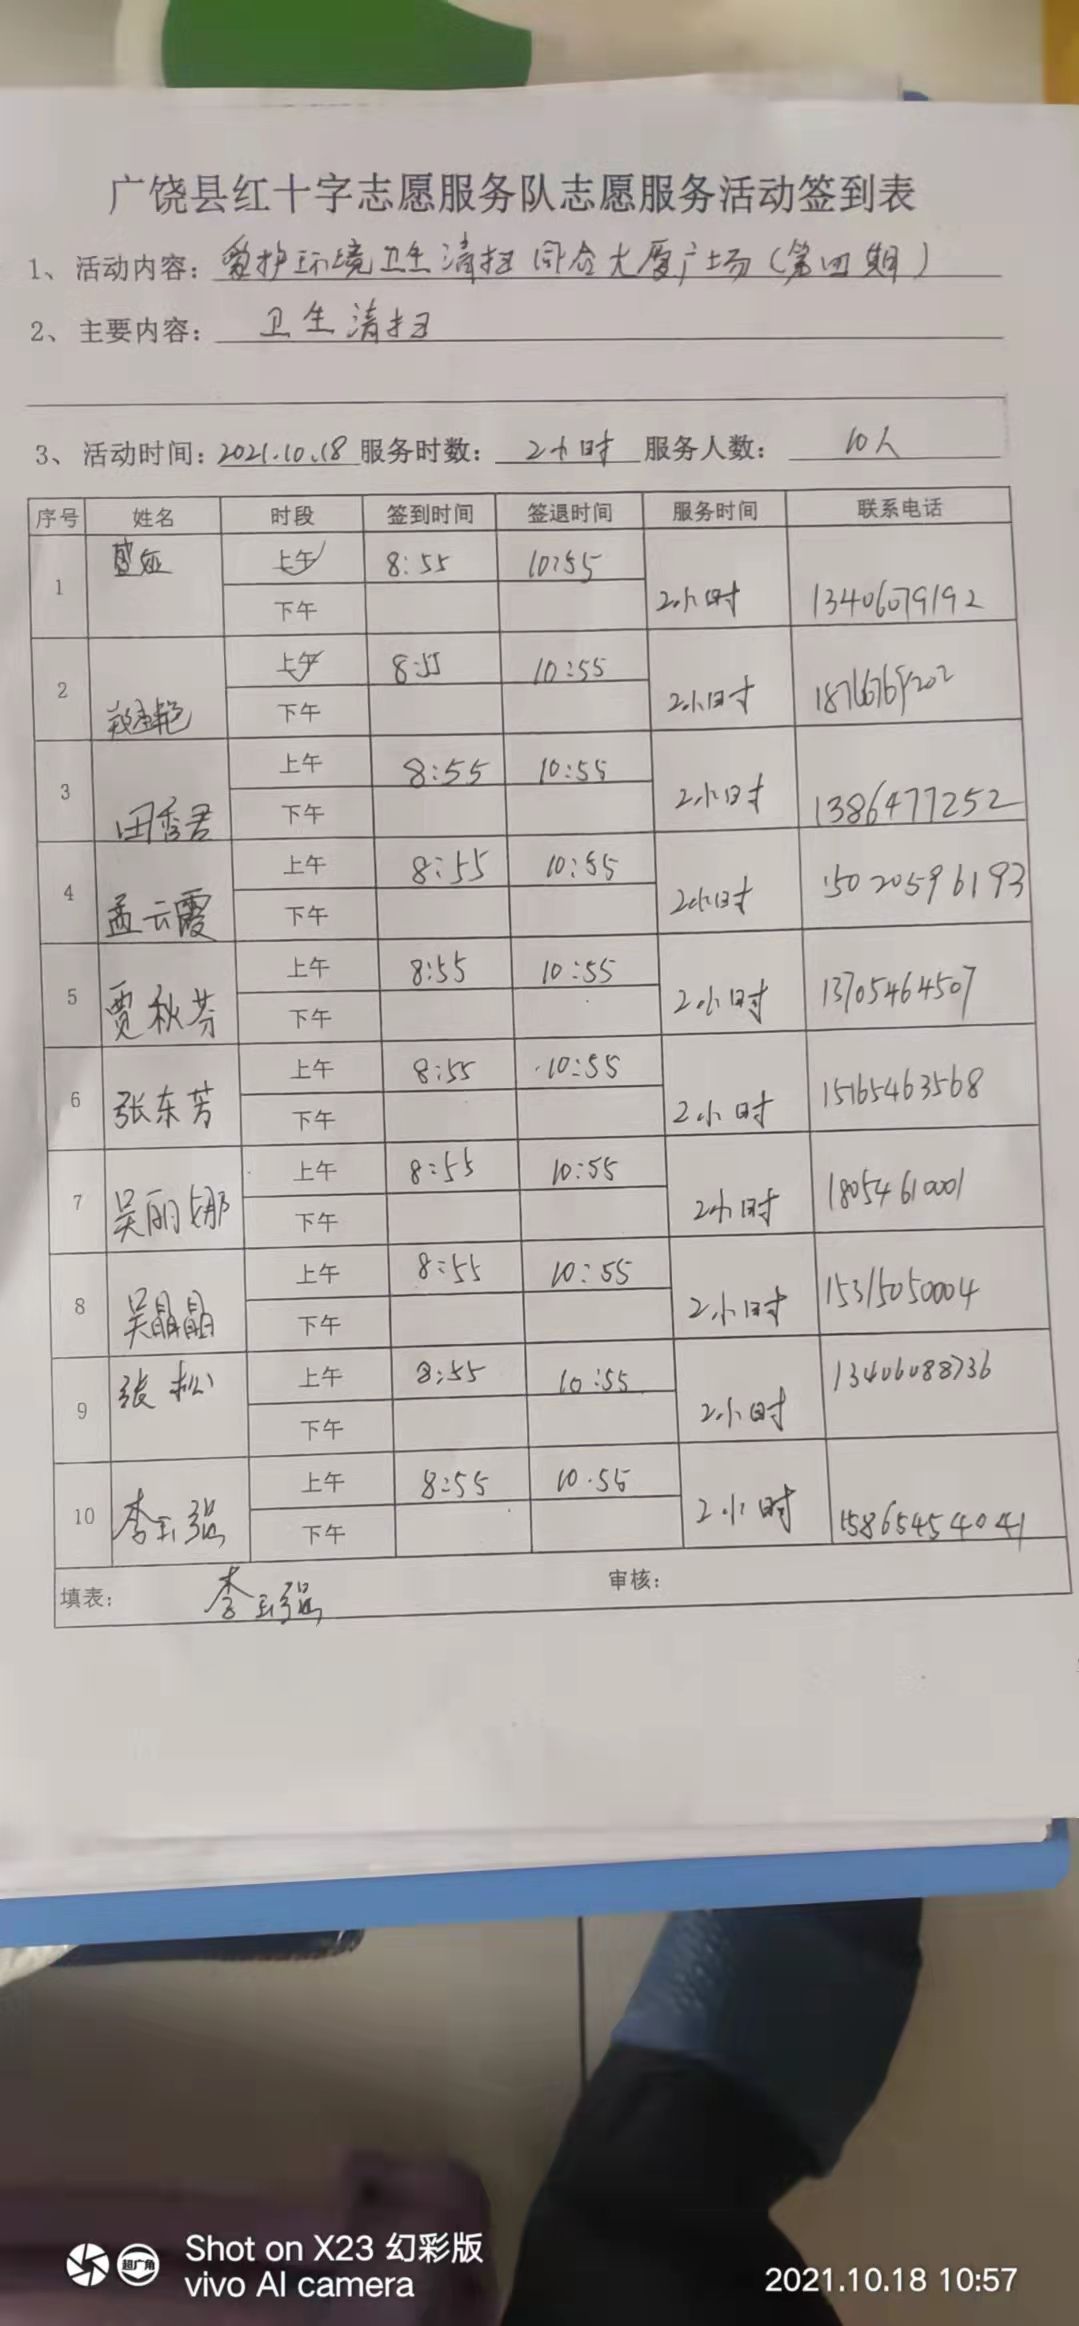 广饶县红十字志愿服务队志愿服务活动签到表
1、活动内容：爱护环境卫生清扫 同合大厦广场（第四期）
2、主要内容：卫生清扫
3、活动时间：2021.10.18 服务时数：2小时 服务人数：10人
序号 姓名 时段 签到时间 签退时间 服务时间 联系电话
1 上午 8:55 10:55 2小时 13406079192
下午
2 上午 8:55 10:55 2小时
下午
3 田秀君 上午 8:55 10:55 2小时 1386477252
下午
4 孟云霞 上午 8:55 10:55 2小时 15020596193
下午
5 贾秋芬 上午 8:55 10:55 2小时 13705464507
下午
6 张东芳 上午 8:55 10:55 2小时 15165463568
下午
7 吴丽娜 上午 8:55 10:55 2小时 18054610001
下午
8 吴晶晶 上午 8:55 10:55 2小时 15315050004
下午
9 张松 上午 8:55 10:55 2小时 13406088736
下午
10 李玉强 上午 8:55 10.55 2小时 15865454041
下午
填表：李玉强 审核：
超广角
Shot on X23 幻彩版
vivo AI camera
2021.10.18 10:57